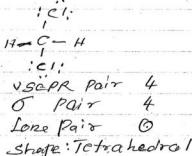 :Cl:
H-C-H
:Cl:
VSEPR pair 4
σ pair 4
Lone pair 0
Shape: Tetrahedral